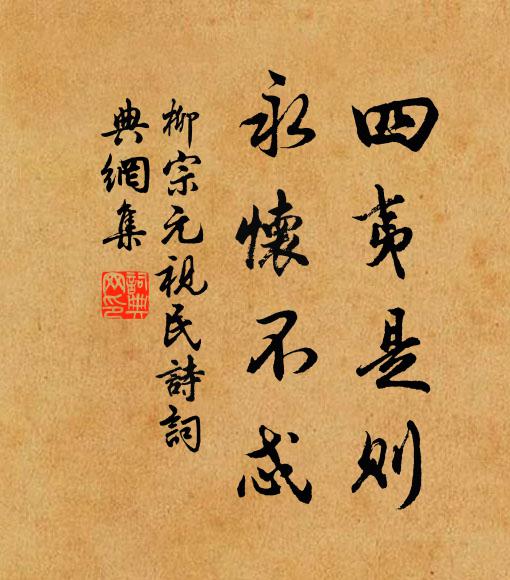 四夷是則
永懷不忒
柳宗元視民詩詞
典網集
詞典
网印